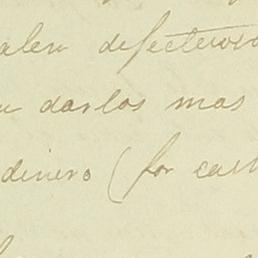 alen defectuoso
darlos mas
dinero (for cash